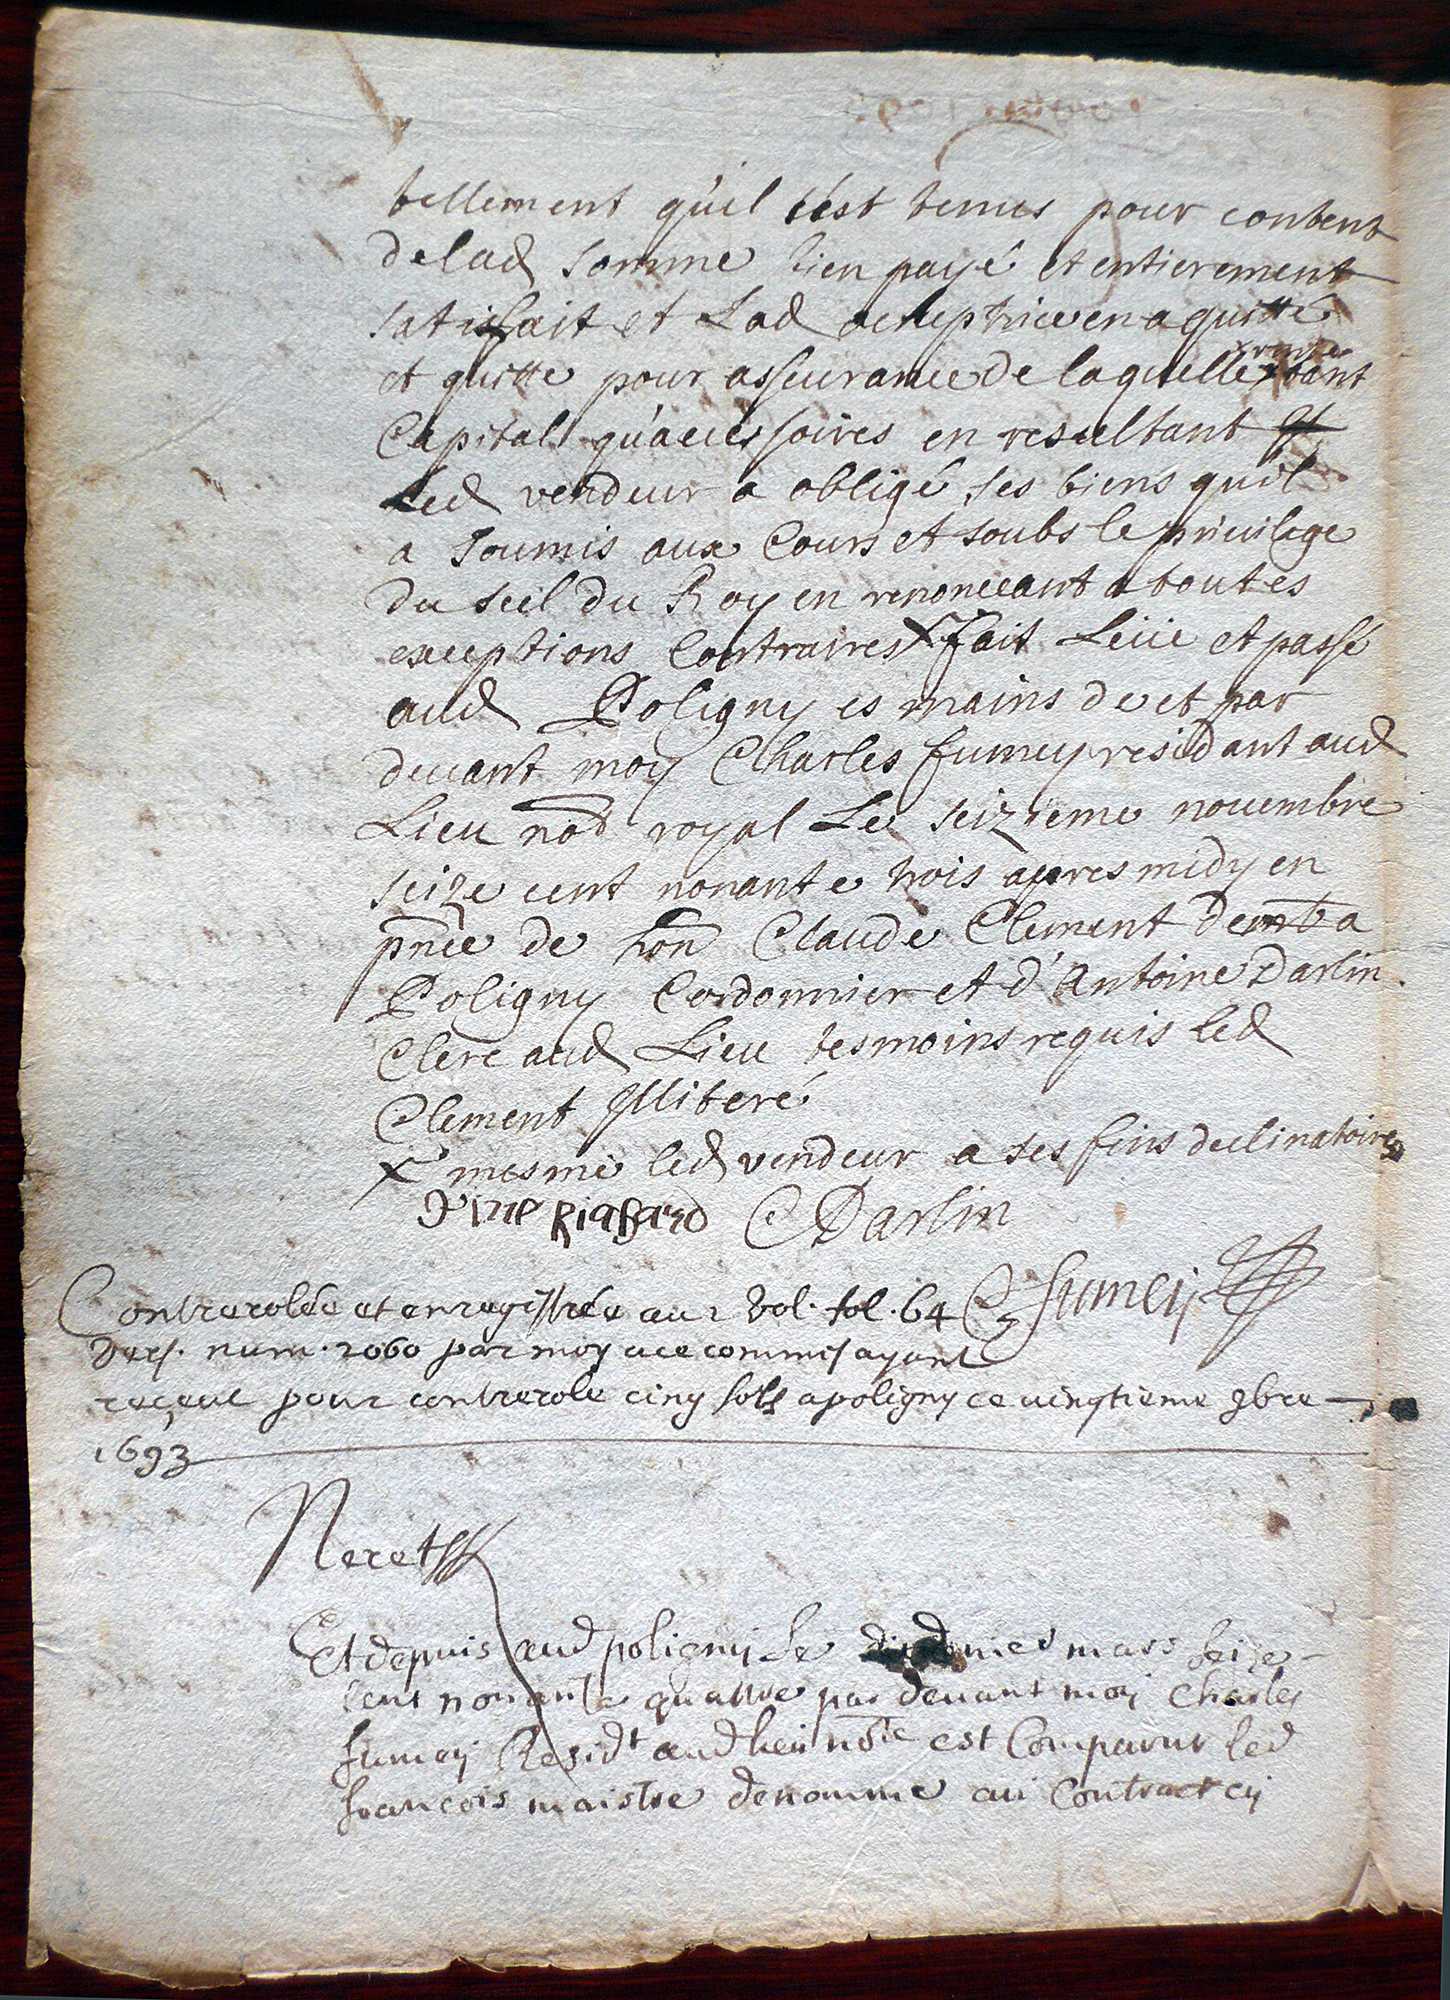 tellement qu'il s'est tenus pour content
de lad somme bien payé et entierement
satisfait et Lad acceptrice en a quitté
et quitte pour asseurance de laquelle x rente tant
Capital qu'accessoires en resultant
Led vendeur a obligé ses biens quil
a soumis aux Cours et soubs le priuilege
du seel du Roy en renonceant a toutes
exceptions Contraires x fait Leüe et passé
aud Poligny es mains de et par
deuant moy Charles fumey residant aud
Lieu not royal Le seizieme nouembre
seize cent nonante trois apres midy en
pnce de hon Claude Clement demt a
Poligny Cordonnier et d'Antoine Darlin
Clerc aud Lieu tesmoins requis led
Clement illiteré
x mesme led vendeur a ses fins declinatoires
Darlin
C fumey
Controrolée et enregistrée au 2 vol. fol. 64
vers. num. 2060 par moy a ce commis ayant
reçeut pour controrole cinq sols a poligny ce vingtieme 9bre
1693
Neret
Et depuis aud poligny Le mars seize
cent nonante quattre par deuant moy Charles
fumey Residt aud lieu nore est Comparut led
francois maistre denomme au Contract cy